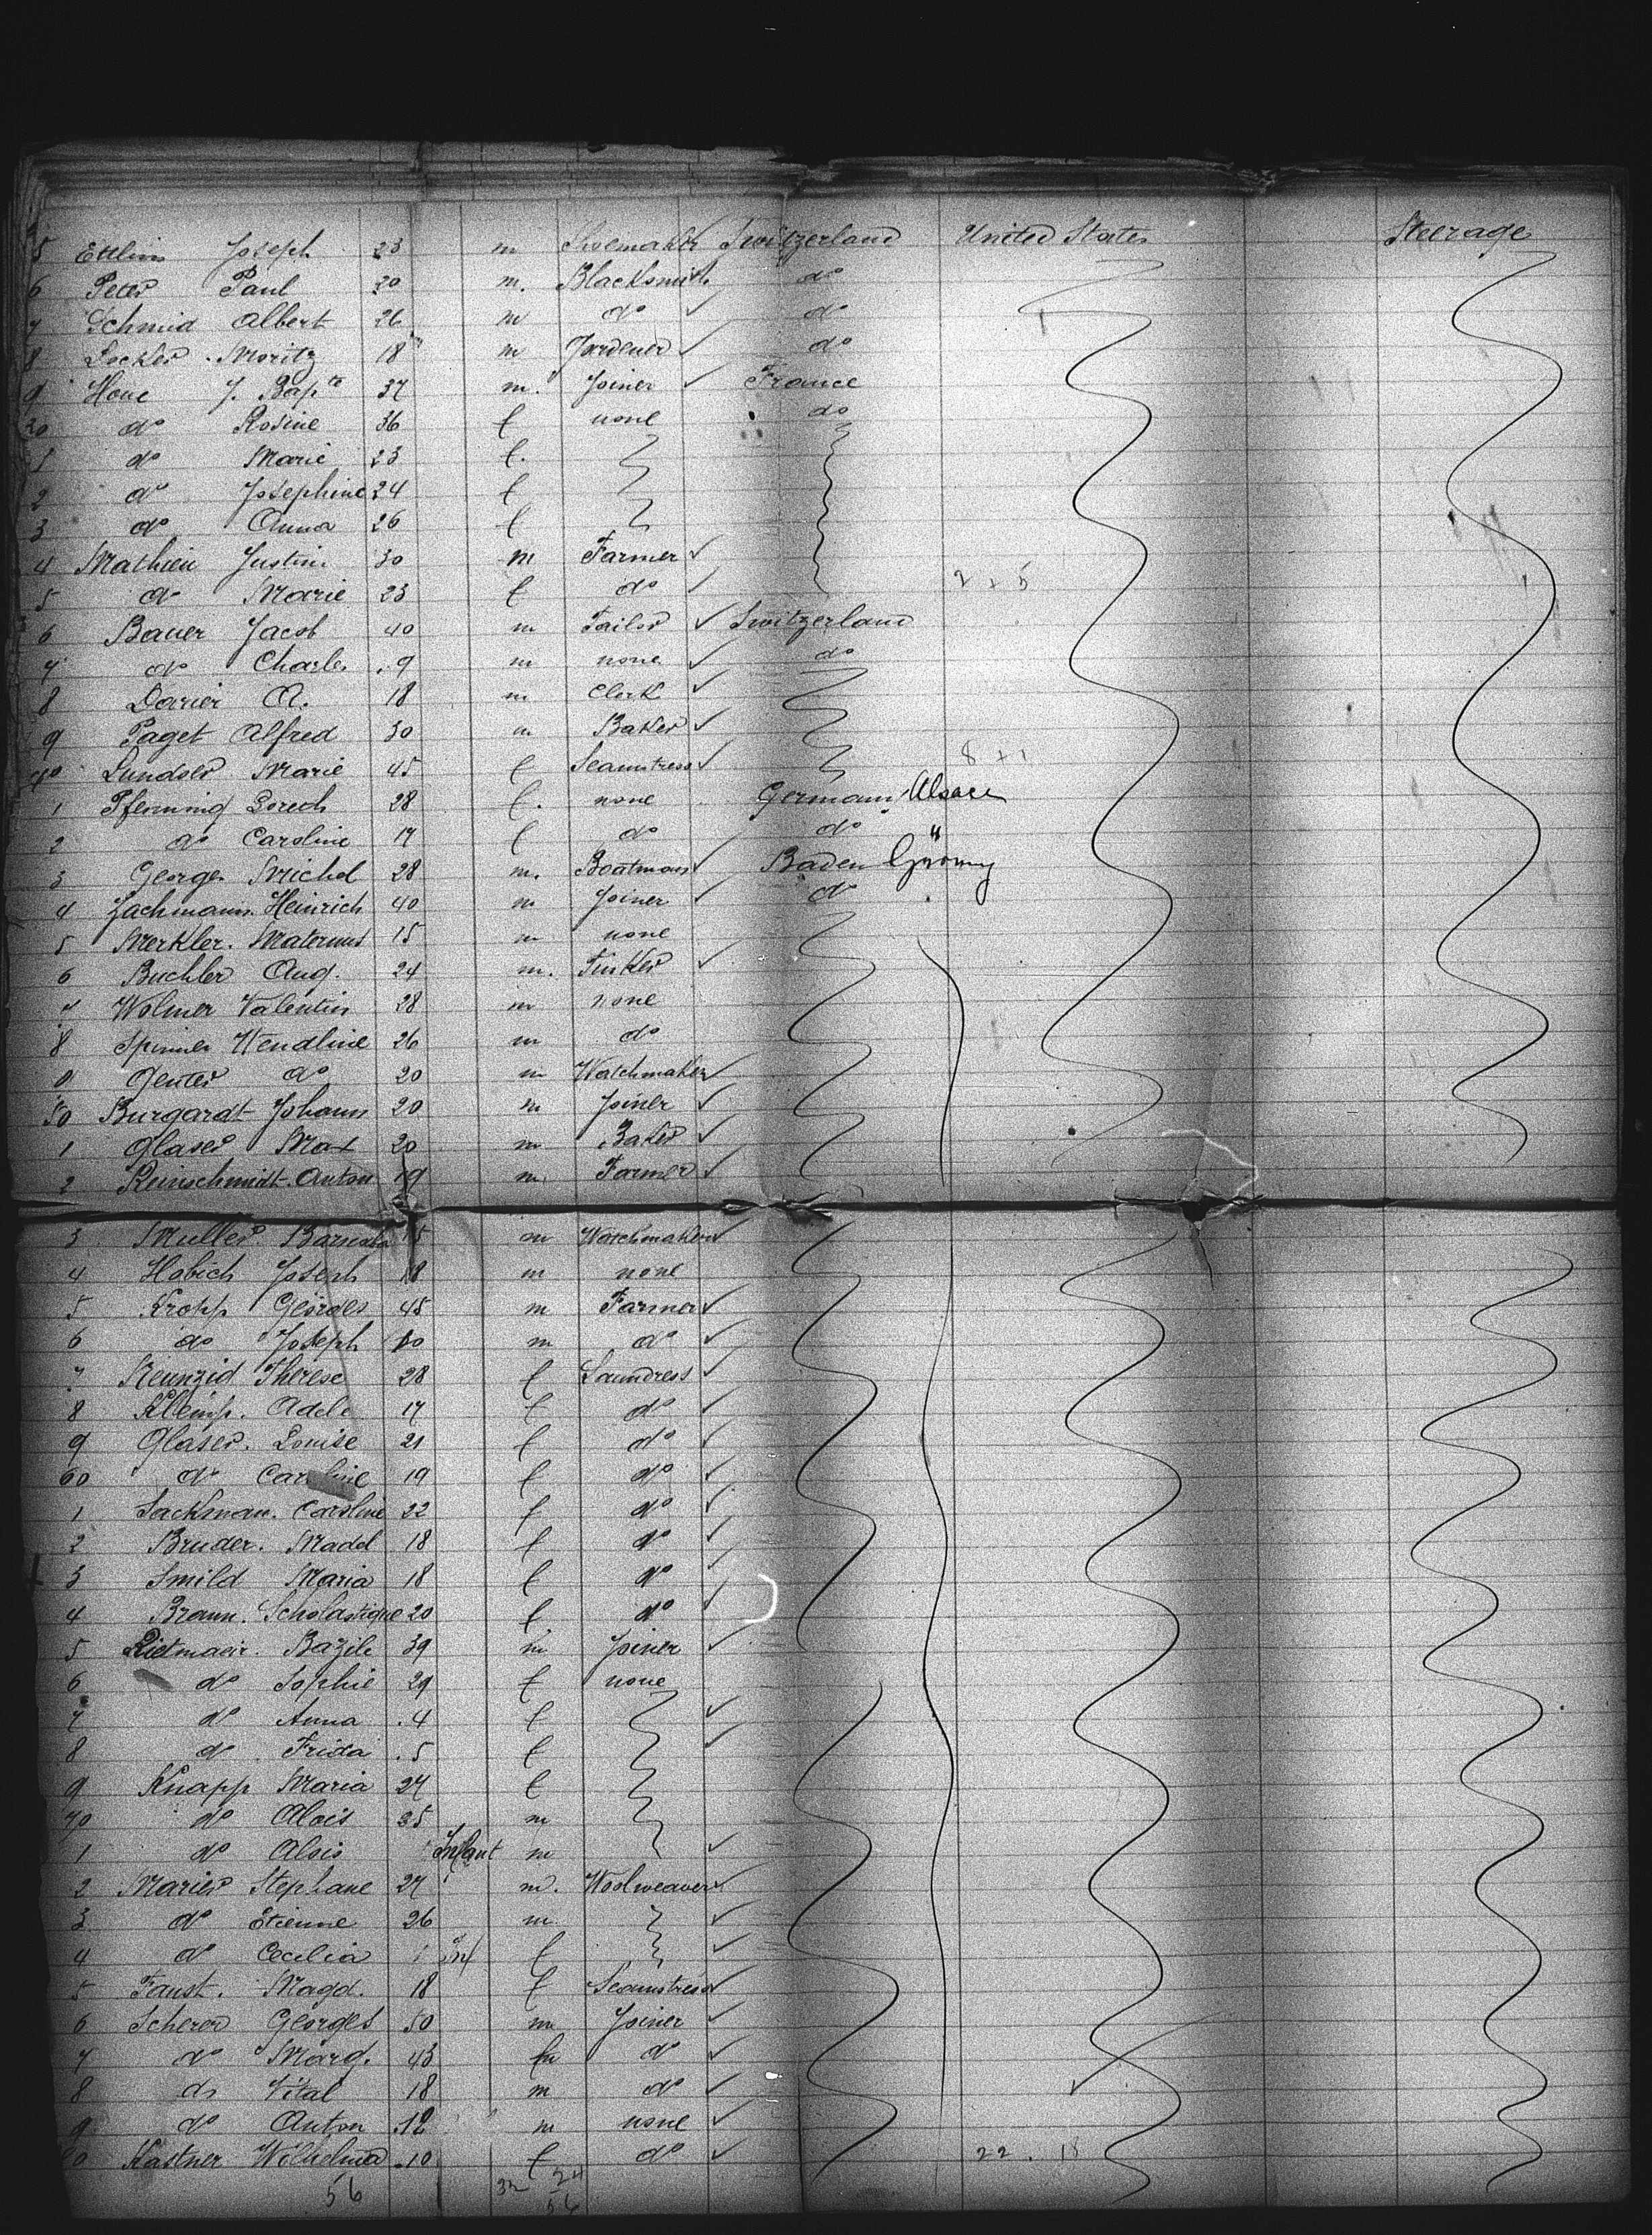 5 Ettlin Joseph 23 m Shoemaker Switzerland United States Steerage
6 Peter Paul 20 m. Blacksmith do
7 Schmid Albert 26 m do ✓ do
8 Moritz 18 m Gardener ✓ do
9 Houc J. Bapte 37 m. Joiner ✓ France
do Rosine 36 f none do
1 do Marie 23 f.
2 do Josephine 24 f
3 do Anna 26 f
4 Mathieu Justin 30 m Farmer ✓
5 do Marie 23 f do ✓ 2 + 5
6 Bauer Jacob 40 m Tailor ✓ Switzerland
7 do Charles 9 m none ✓ do
8 Darier A. 18 m Clerk ✓
9 Paget Alfred 30 m Baker ✓
40 Marie 45 f Seamstress ✓ 8 + 1
1 Pfenning 28 f. none Germany Alsace
2 do Caroline 17 f do do "
3 George Michel 28 m. Boatman ✓ Baden Grmny
4 Jachmann Heinrich 40 m Joiner ✓ do
5 Merkler. Maternus 15 m none
6 Buchler Aug. 24 m. Tinker ✓
7 Wolmer Valentin 28 m none
8 Spinner Wendline 26 m do
9 Genter do 20 m Watchmaker ✓
50 Burgardt Johann 20 m Joiner ✓
1 Glaser Max 20 m Baker ✓
2 Reinschmidt Anton 19 m. Farmer ✓
3 Muller 15 m Watchmaker ✓
4 Habich Joseph 18 m none
5 Kropp Georges 45 m Farmer ✓
6 do Joseph m do ✓
7 Therese 28 f Laundress ✓
8 Klemp. Adele 17 f do ✓
9 Glaser. Louise 21 f do ✓
60 do Caroline 19 f do ✓
1 Sackman. Caroline 22 f do ✓
2 Bruder. Madel 18 f do ✓
3 Smild Maria 18 f do ✓
4 Braun. Scholastique 20 f do ✓
5 Rietmaeir. Bazile 39 m Joiner ✓
6 do Sophie 29 f none
7 do Anna . 4 f ✓
8 do Frida . 5 f ✓
9 Knapp Maria 27 f
70 do Alois 35 m
1 do Alois Infant m ✓
2 Marier Stephane 27 m. Woolweaver ✓
3 do Etienne 26 m ✓
4 do Cecilia Inf f ✓
5 Faust. Magd. 18 f Seamstress ✓
6 Scherer Georges 50 m Joiner ✓
7 do Marg. 43 do ✓
8 do Vital 18 m do ✓
9 do Anton 12 m none ✓
Kastner Wilhelmina 10 f do ✓ 22 . 18
56 32 24
56